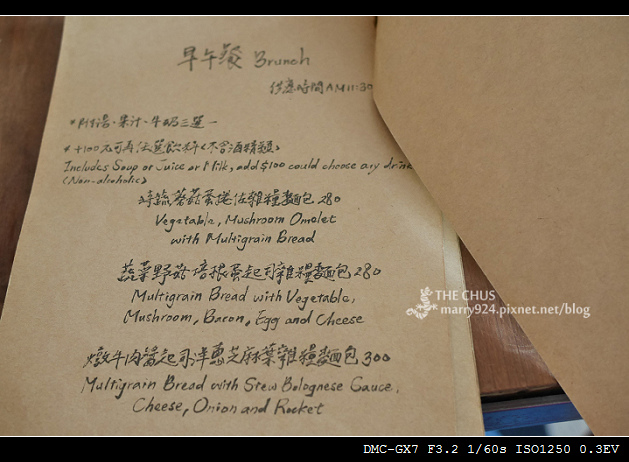 早午餐 Brunch
供應時間 AM11:30
*附湯、果汁、牛奶三選一
*+100元可再任選飲料(不含酒精類)
Includes Soup or Juice or Milk, add $100 could choose any drink
(Non-alcoholic)
時蔬蘑菇蛋捲佐雜糧麵包 280
Vegetable, Mushroom Omelet
with Multigrain Bread
蔬菜野菇培根蛋起司雜糧麵包 280
Multigrain Bread with Vegetable,
Mushroom, Bacon, Egg and Cheese
燉牛肉醬起司洋蔥芝麻葉雜糧麵包 300
Multigrain Bread with Stew Bolognese Sauce,
Cheese, Onion and Rocket
THE CHUS
marry924.pixnet.net/blog
DMC-GX7 F3.2 1/60s ISO1250 0.3EV